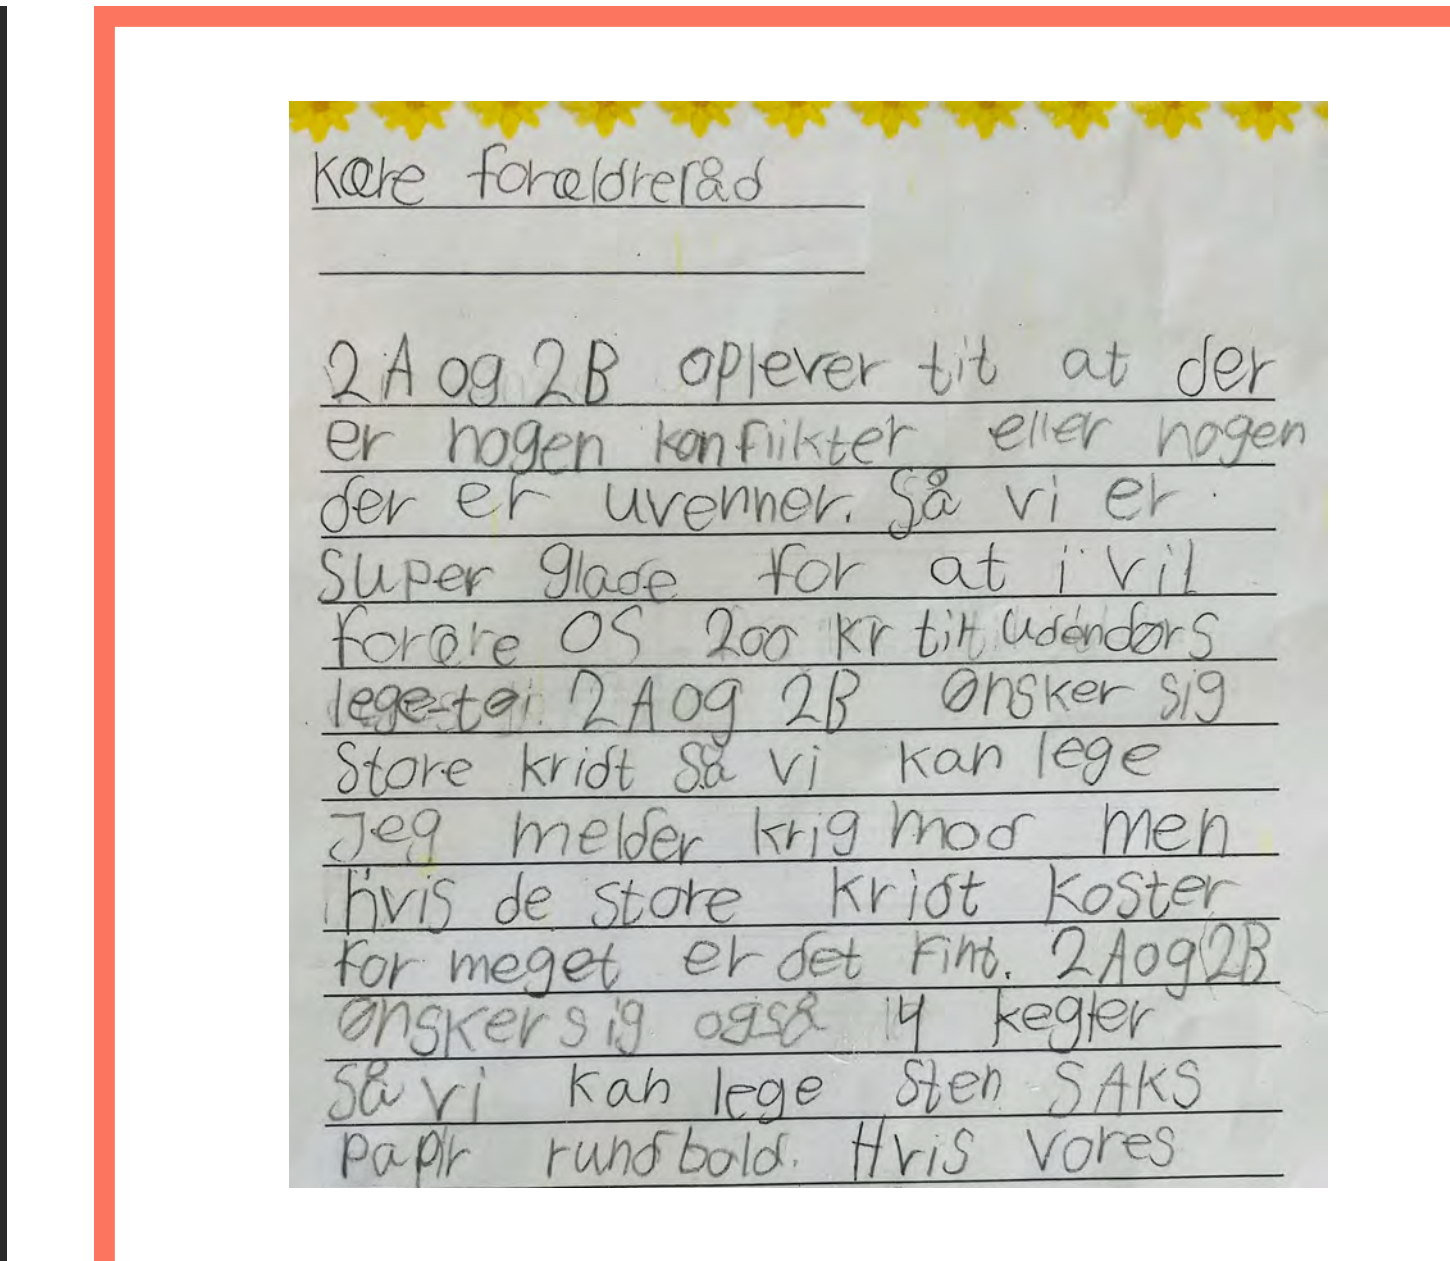 Kære forældreråd
2A og 2B oplever tit at der
er nogen konflikter eller nogen
der er uvenner. Så vi er
super glade for at i vil
forære os 200 kr til udendørs
legetøj. 2A og 2B ønsker sig
store kridt så vi kan lege
Jeg melder krig mod men
hvis de store kridt koster
for meget er det fint. 2A og 2B
ønsker sig også 14 kegler
så vi kan lege sten SAKS
papir rundbold. Hvis vores